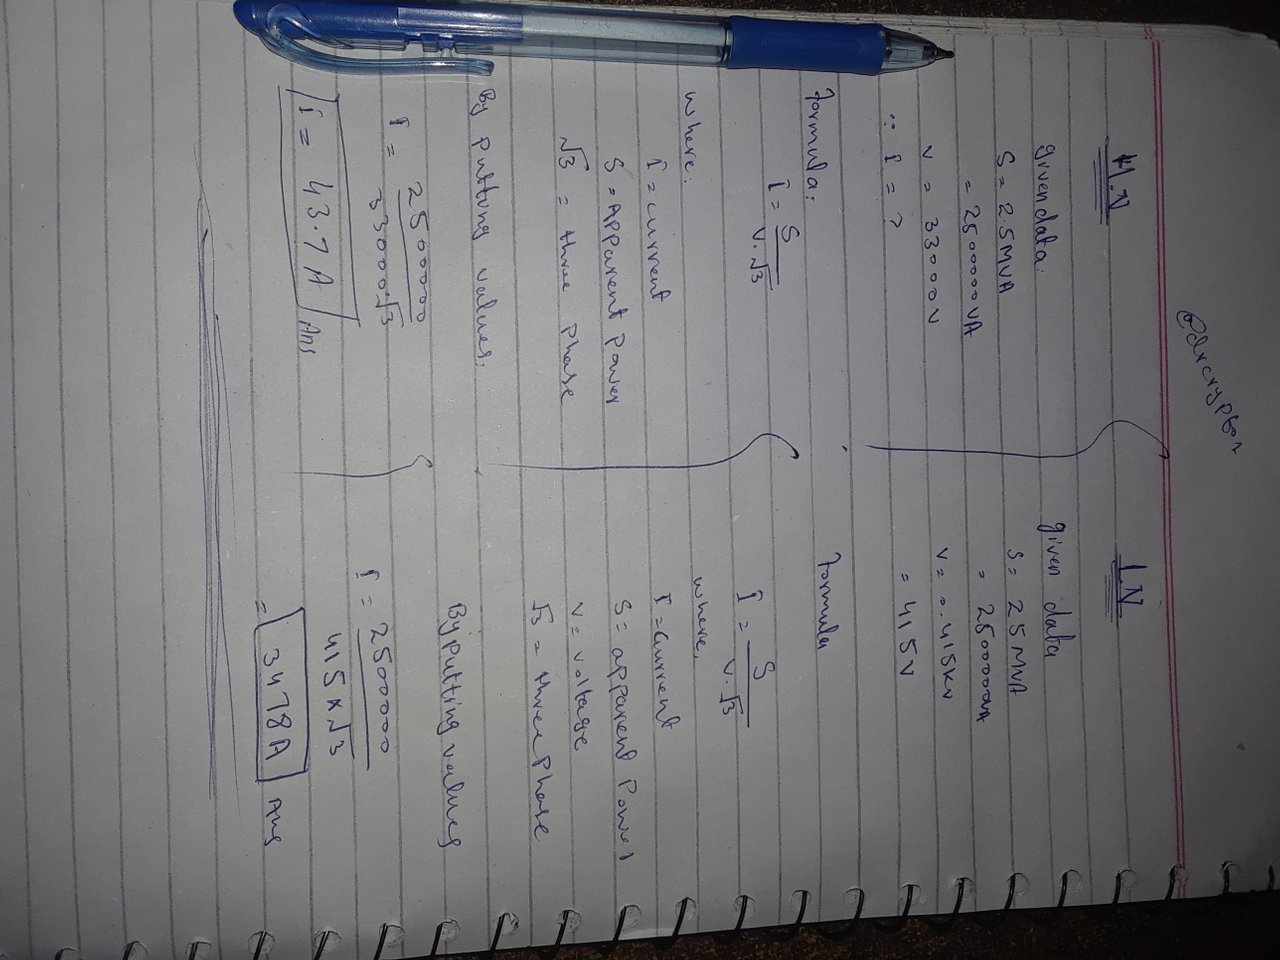 @drcrypton
H.N
given data.
S = 2.5MVA
= 2500000VA
V = 33000V
∵ I = ?
formula:
I = S
V.√3
where:
I = current
S = APParent Power
√3 = three Phase
By Putting values.
I = 2500000
33000.√3
I = 43.7A Ans
LN
given data
S = 25MVA
= 2500000VA
V = 0.415KV
= 415V
formula
I = S
V.√3
where,
I = Current
S = apparent Power
V = voltage
√3 = three Phase
By Putting values
I = 2500000
415 x √3
= 3478A Ans